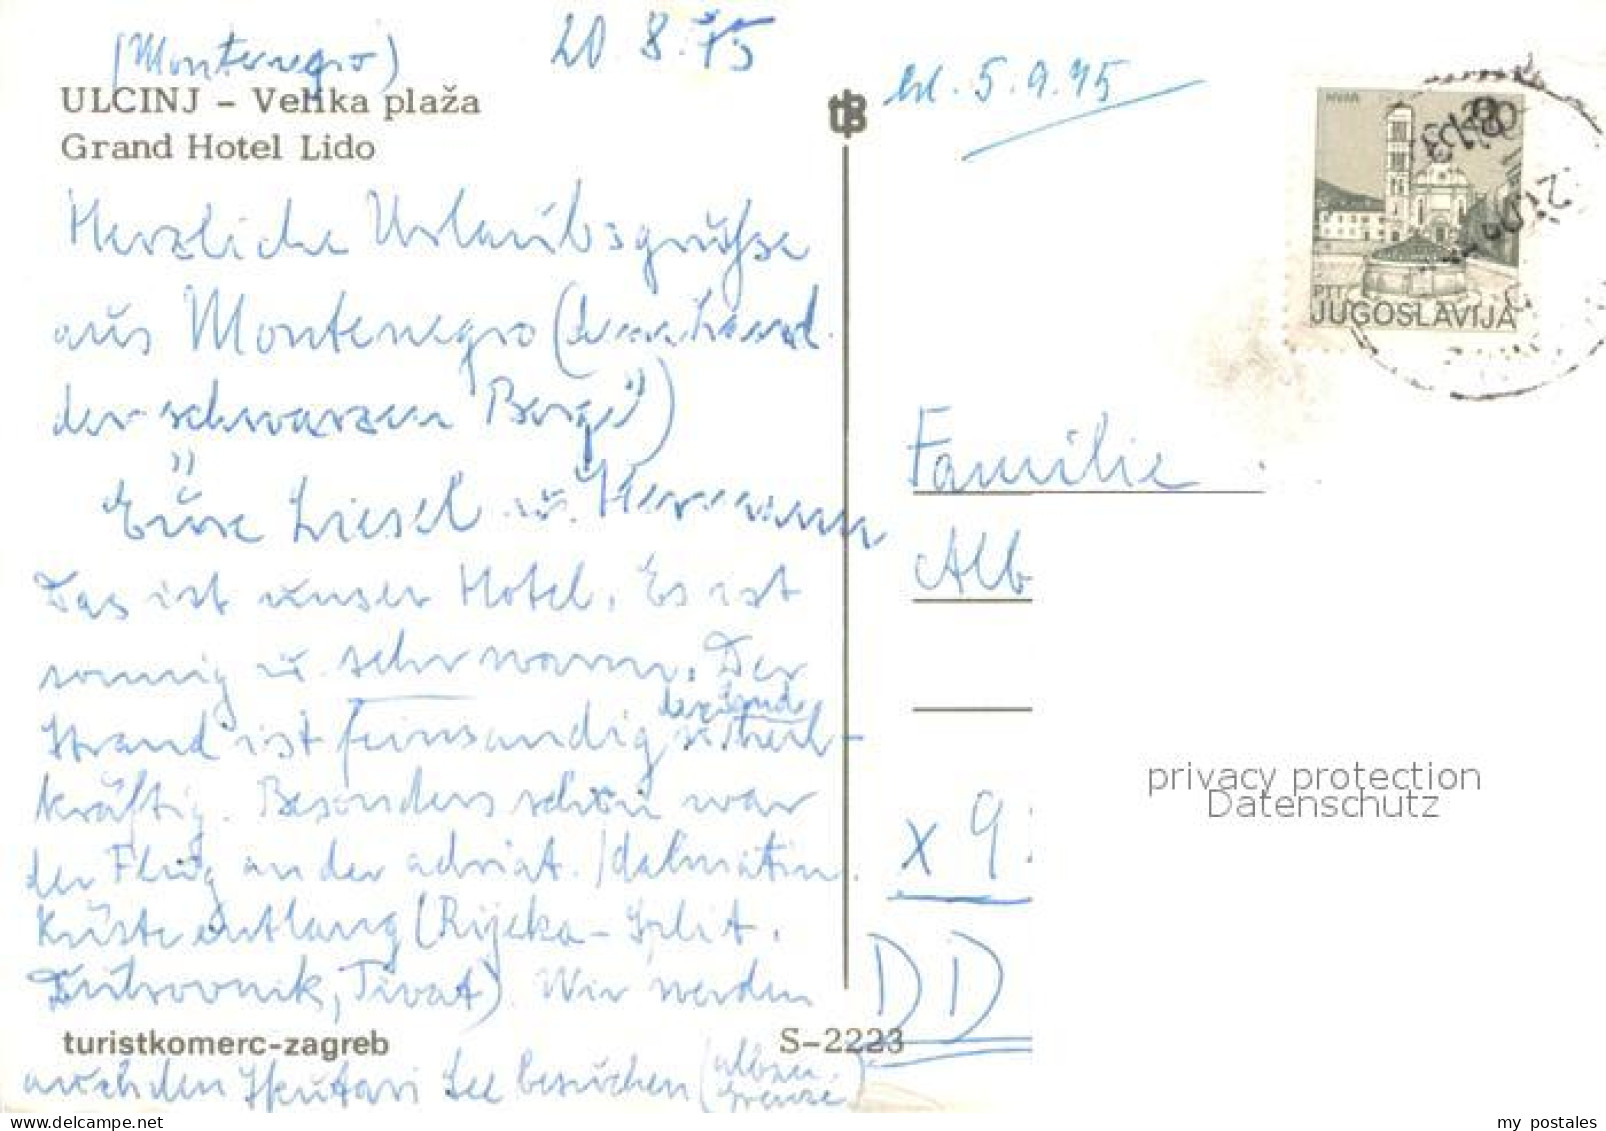 (Montenegro) 20.8.75
ULCINJ – Velika plaža
Grand Hotel Lido
Herzliche Urlaubsgrüsse
aus Montenegro (
der schwarzen Berge")
Eure Liesel u. Hermann
Das ist unser Hotel. Es ist
sonnig u. sehr warm. Der
Strand ist feinsandig u. heil-
der Sand
kräftig. Besonders schön war
der Flug an der adriat. / dalmatin.
Küste entlang (Rijeka - Split,
Dubrovnik, Tivat). Wir werden
turistkomerc-zagreb
S-2223
auch den Skutari See besuchen (alban.
Grenze)
tB
erl. 5.9.75
HVAR
PTT
JUGOSLAVIJA
Familie
Alb
x 9
DD
privacy protection
Datenschutz
my postales